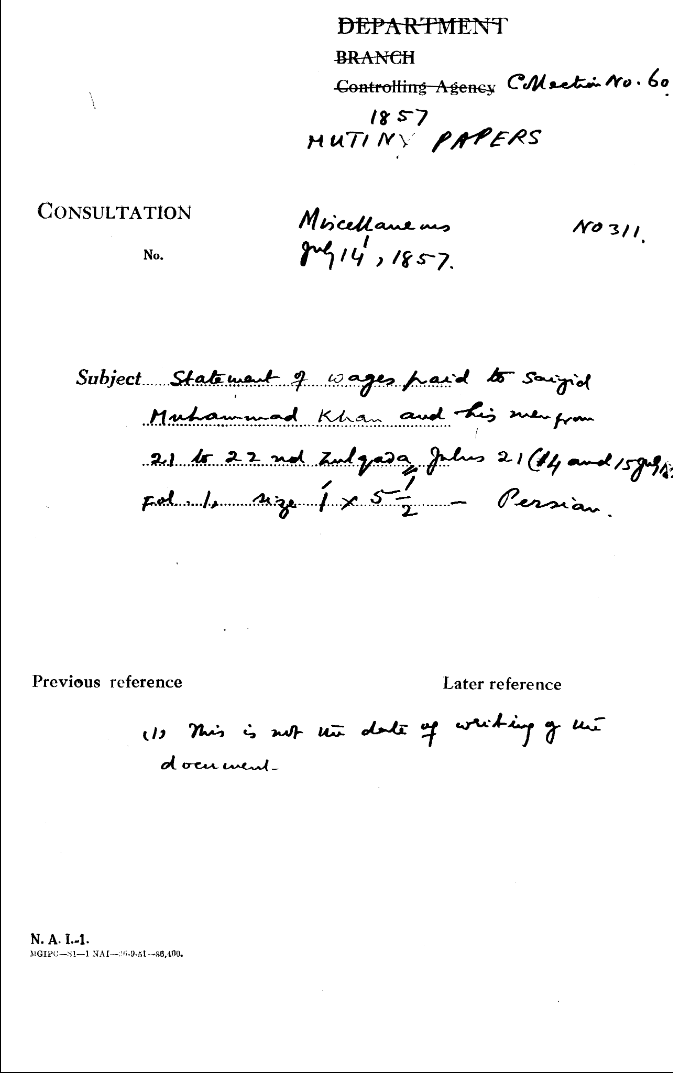 DEPARTMENT
BRANCH
Controlling Agency Collection No. 60
1857
MUTINY PAPERS
CONSULTATION
Miscellaneous NO 311.
No. July 14¹, 1857.
Subject Statement of wages paid to Saiyid
Muhammad Khan and his men from
21 to 22 nd Zulqada, Julus 21 (14 and 15 July
Fol. 1, size 1 × 5 1/2 — Persian.
Previous reference Later reference
(1) This is not the date of writing of the
document.
N. A. I.-1.
MGIPC—S1—1 NAI